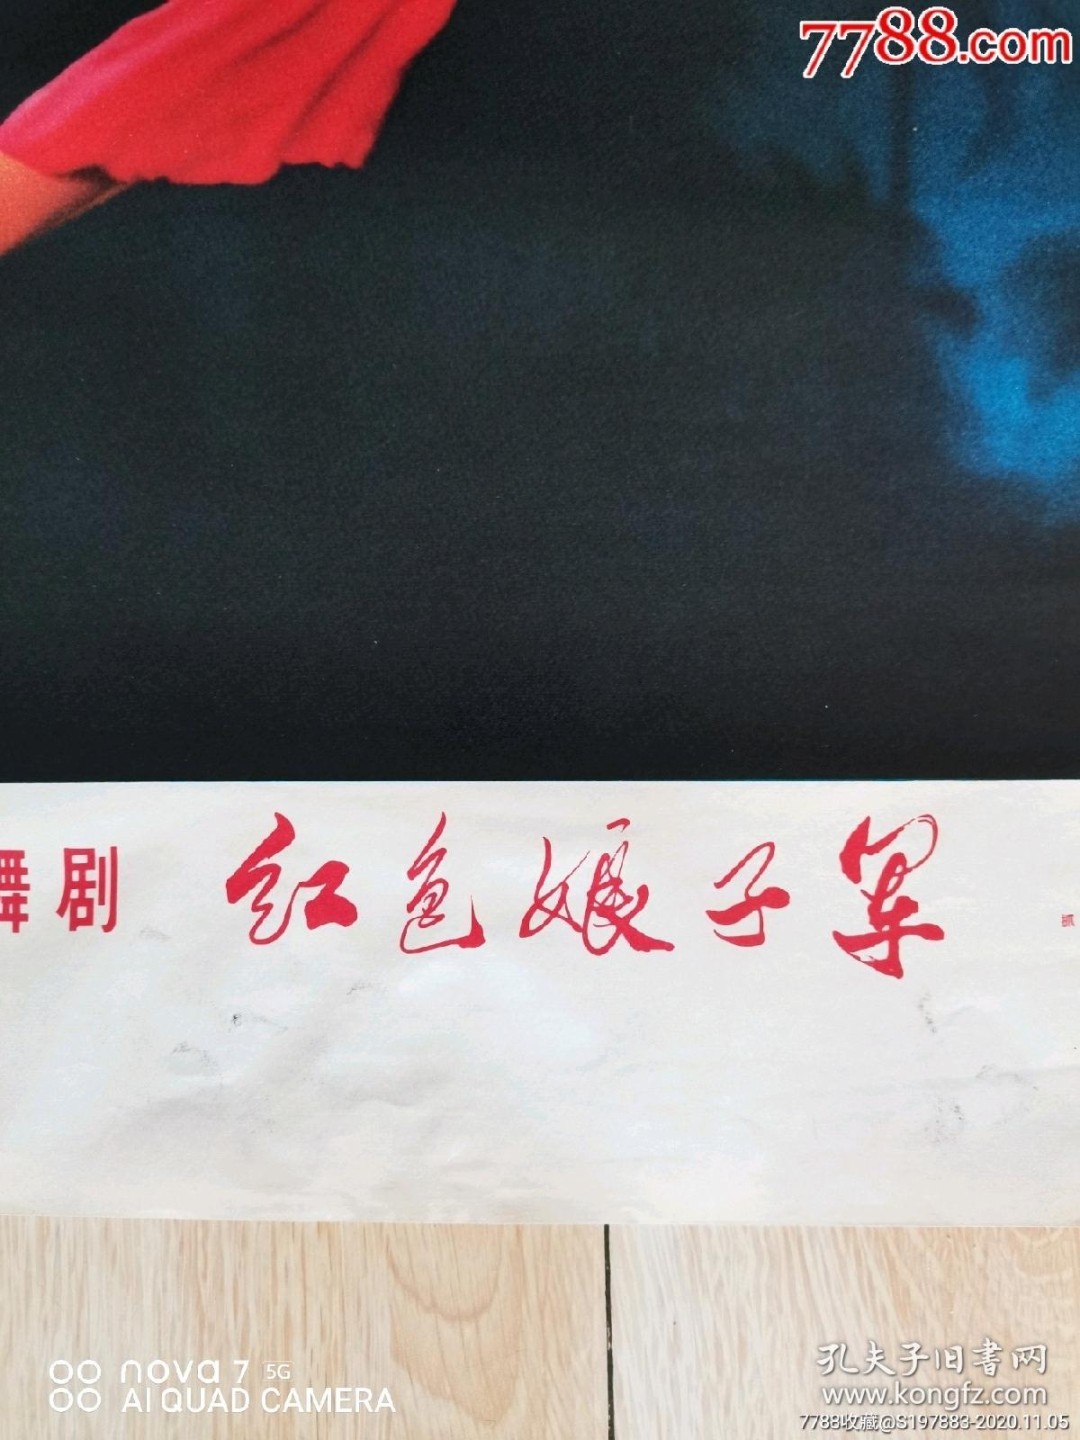 7788.com
舞剧 红色娘子军
nova 7 5G
AI QUAD CAMERA
孔夫子旧书网
www.kongfz.com
7788收藏@S197883-2020.11.05